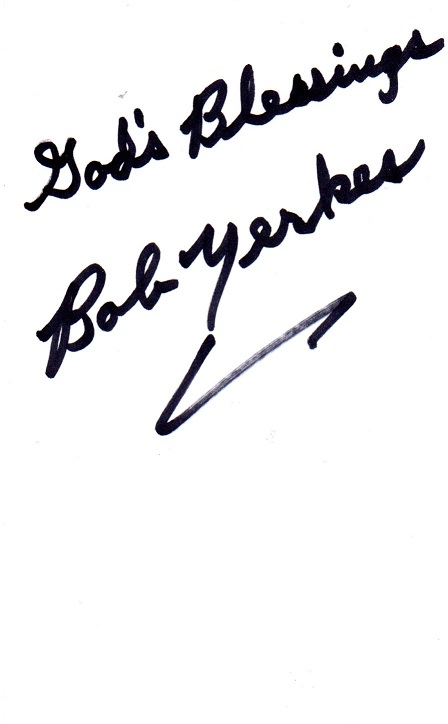 God's Blessings
Bob Yerkes